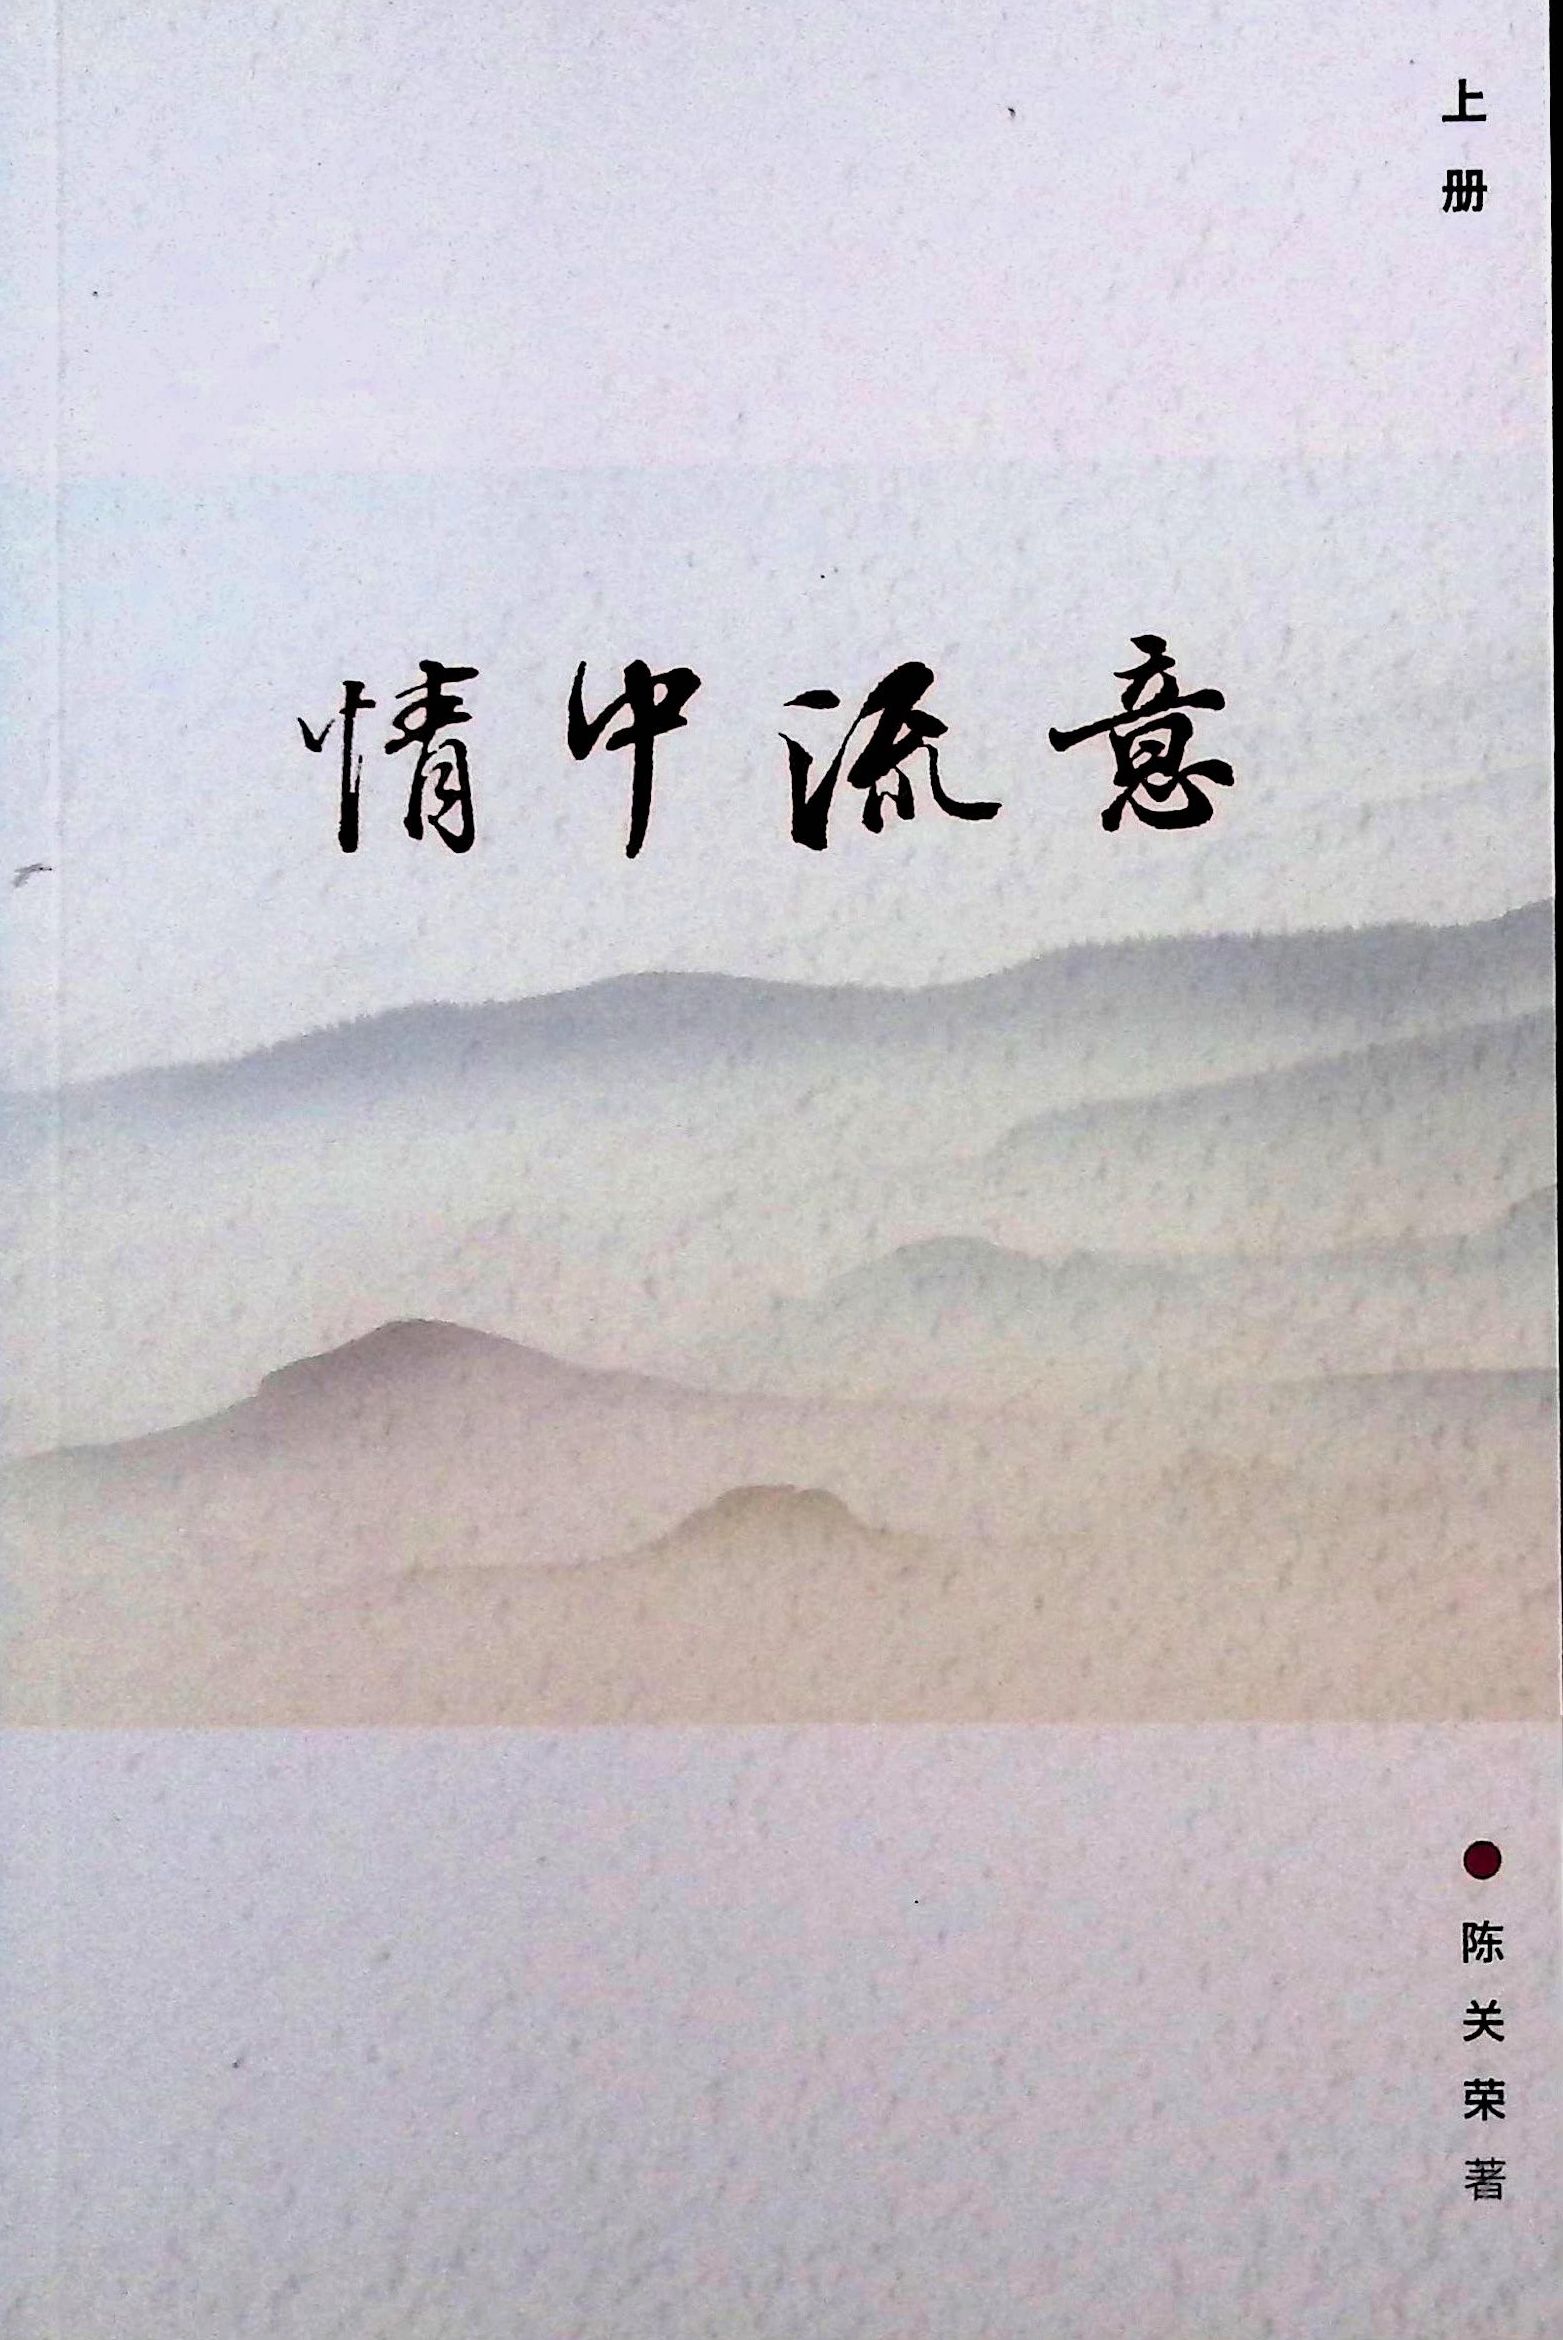 上册
情中流意
陈关荣 著